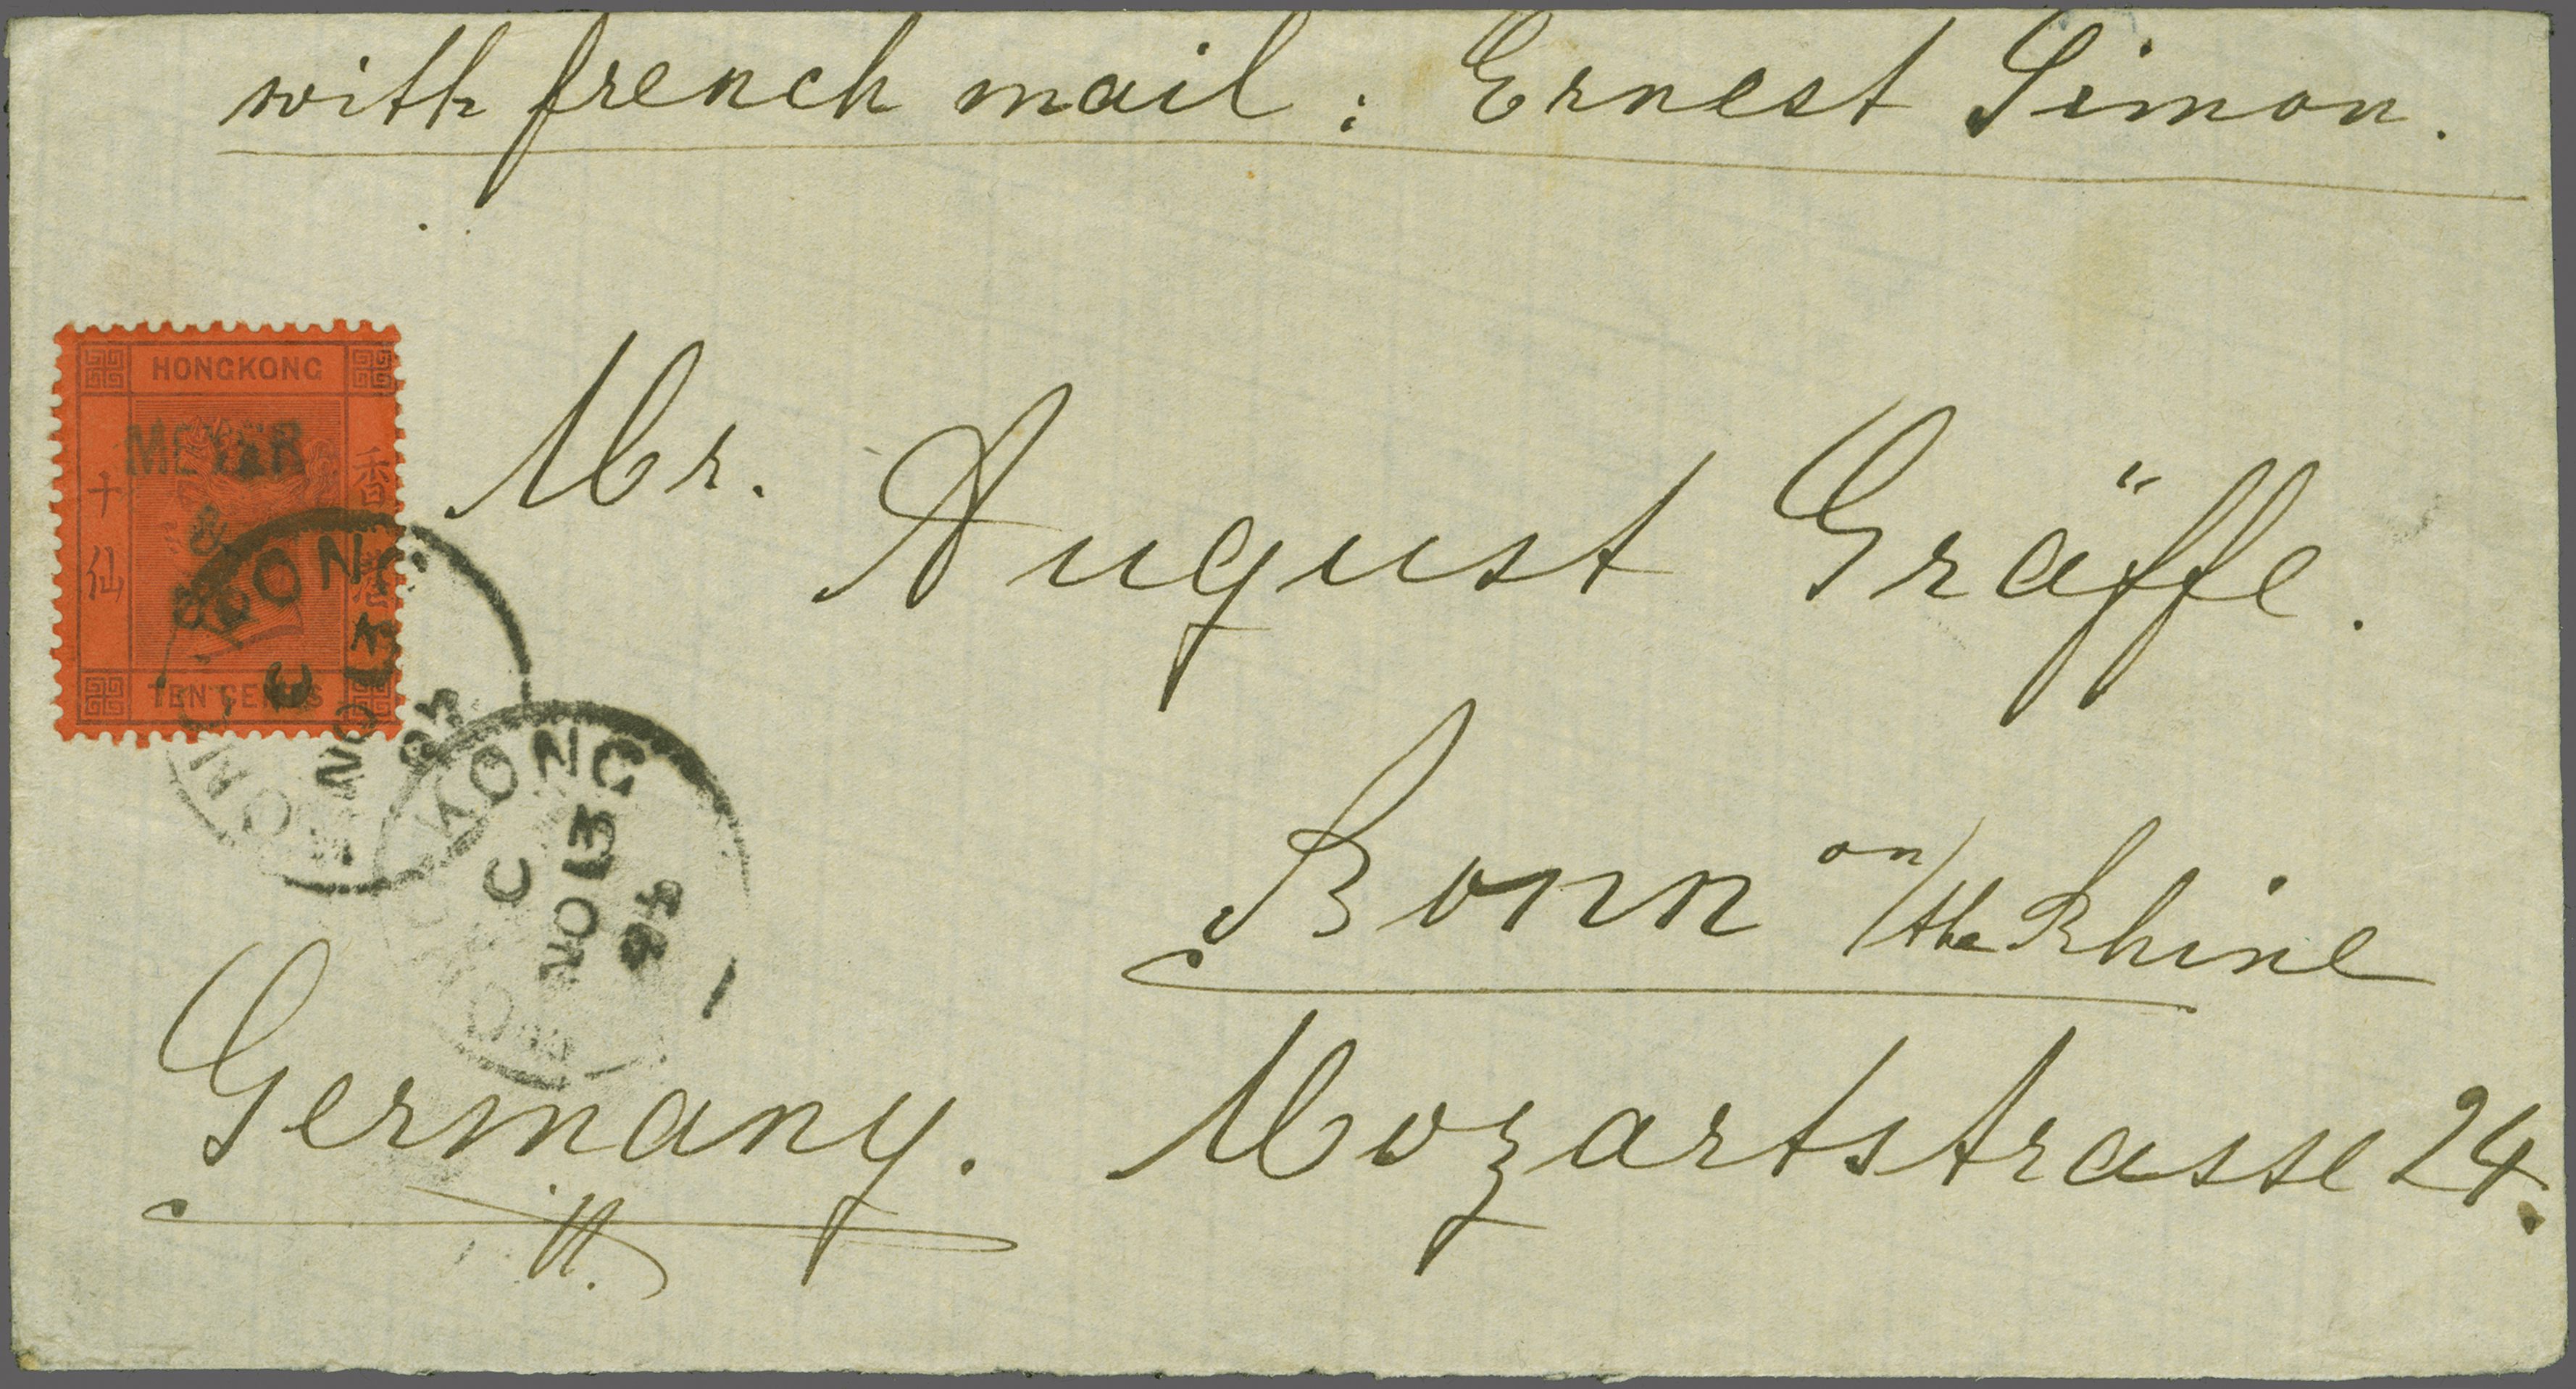 with french mail : Ernest Simon.
HONGKONG
MEYER
&
香港
十仙
TEN CENTS
Mr. August Gräffe.
KONG
C
NO 13
94
KONG
C
NO 13
94
Bonn on/the Rhine
Germany. Mozartstrasse 24.